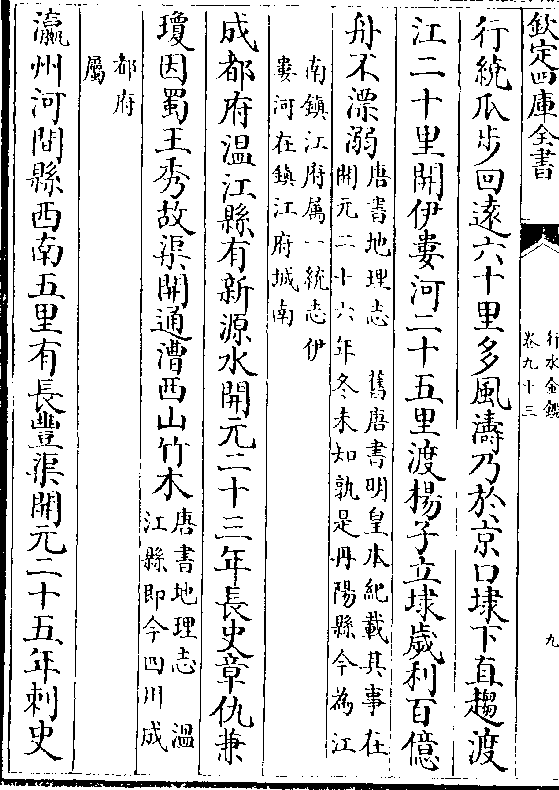 欽定四庫全書
行水金鑑
卷九十三
九
行繞瓜步回遠六十里多風濤乃於京口埭下直趨渡
江二十里開伊婁河二十五里渡楊子立埭歲利百億
舟不漂溺
唐書地理志　舊唐書明皇本紀載其事在
開元二十六年冬未知孰是丹陽縣今為江
南鎮江府屬一統志伊
婁河在鎮江府城南
成都府溫江縣有新源水開元二十三年長史章仇兼
瓊因蜀王秀故渠開通漕西山竹木
唐書地理志　溫
江縣即今四川成
都府
屬
瀛州河間縣西南五里有長豐渠開元二十五年刺史